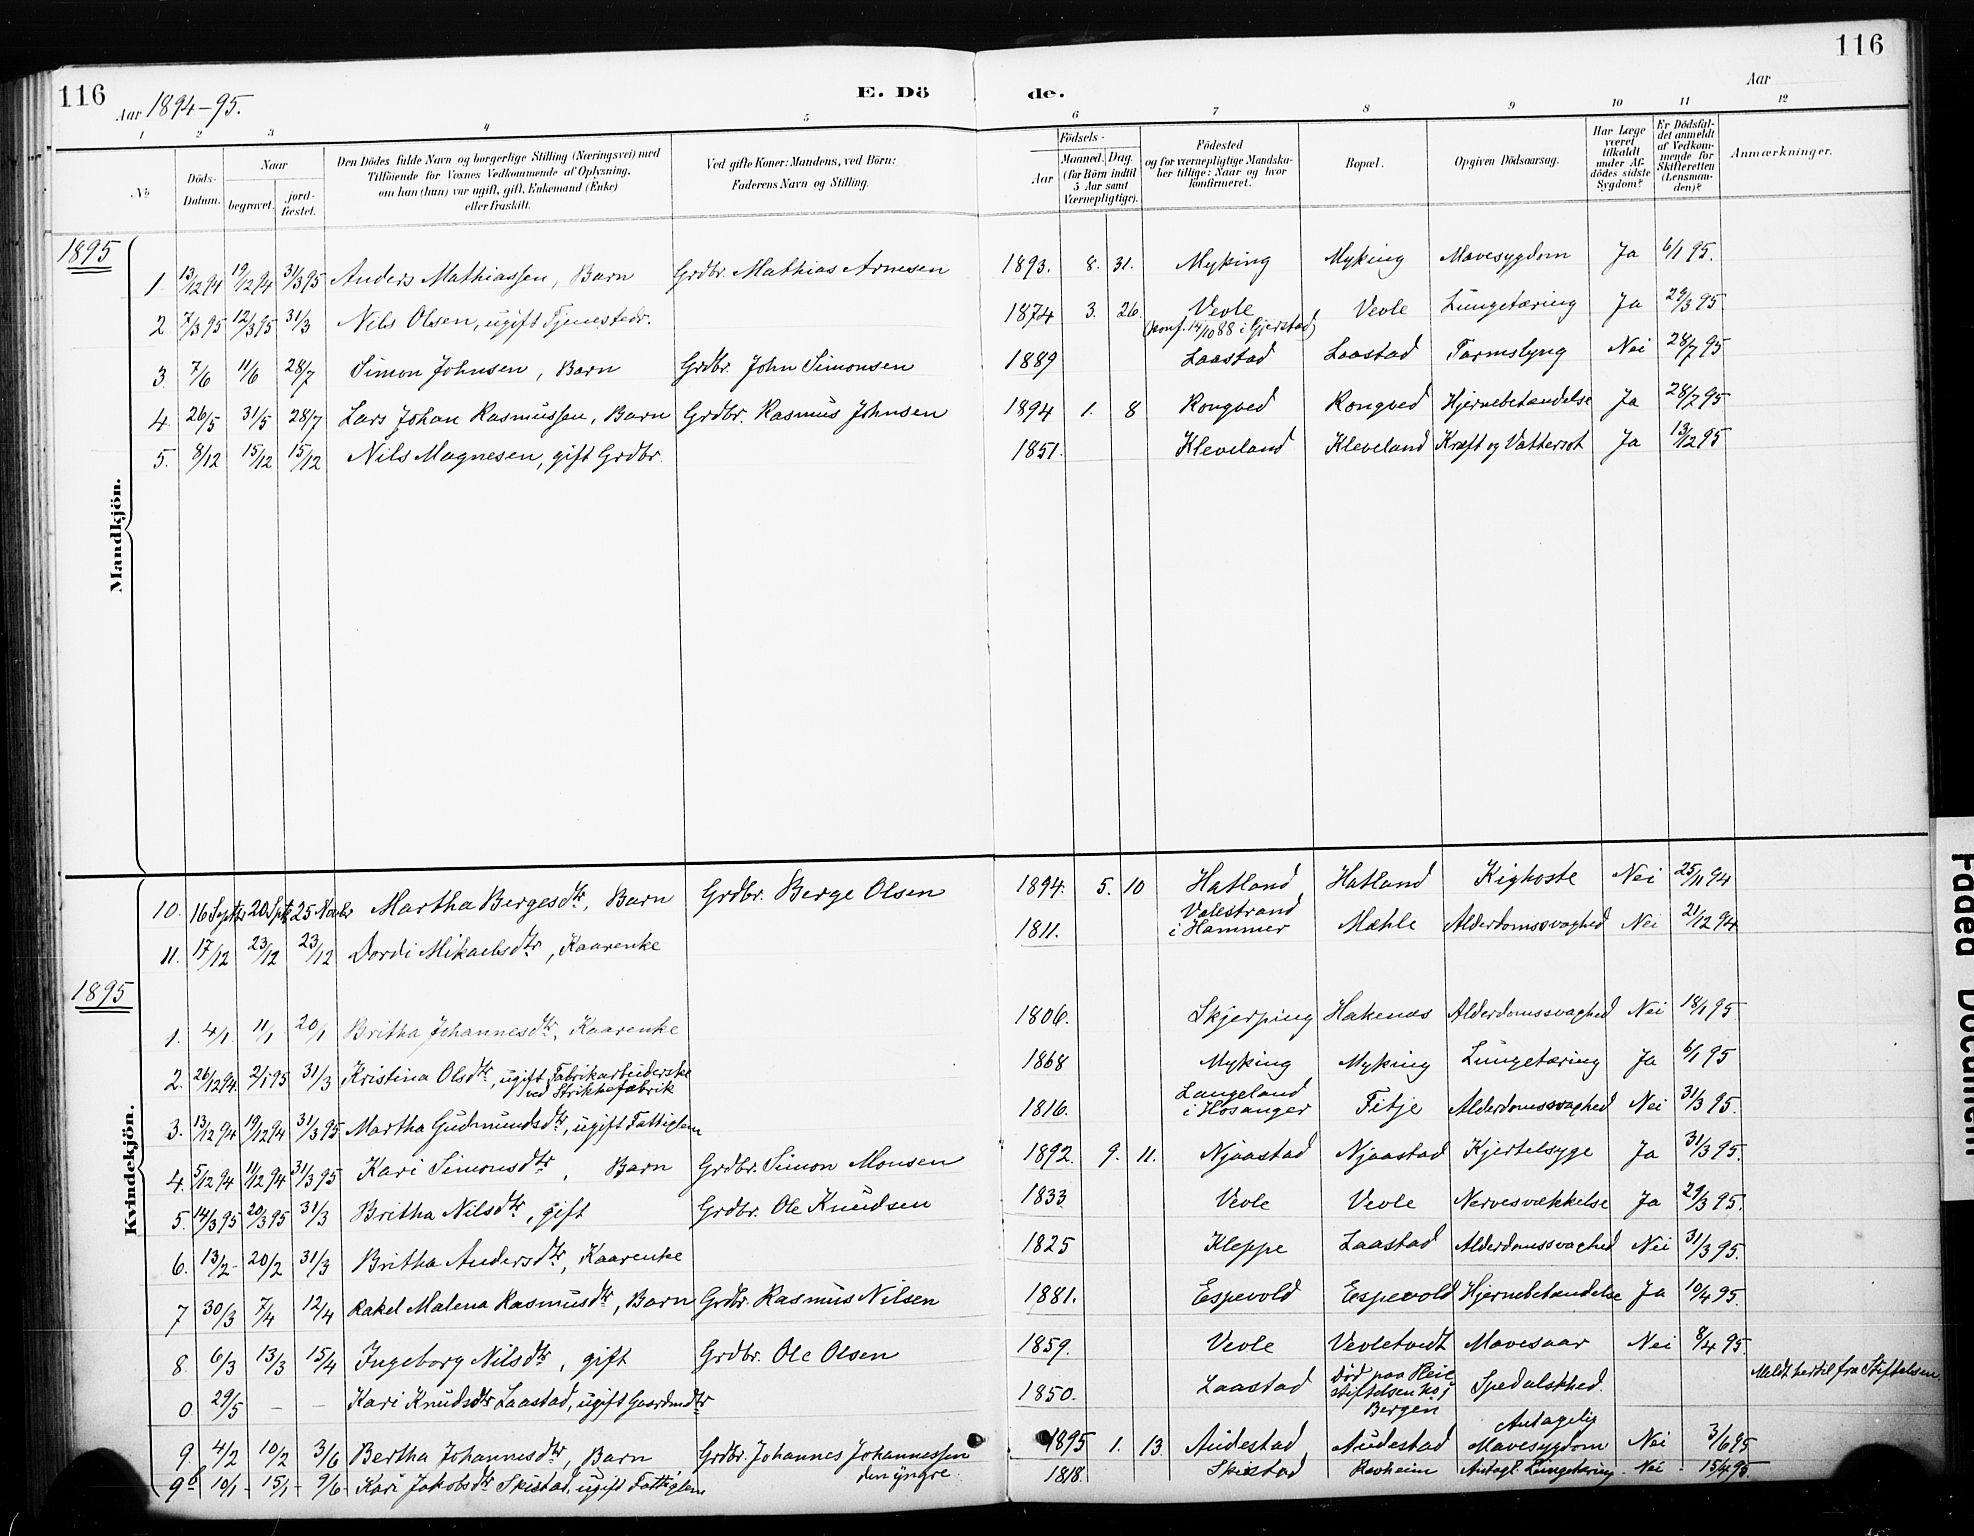 116
Aar 1894-95.
E. Dö
de.
Aar
116
1 2 3 4 5 6 7 8 9 10 11 12
No
Döds-Datum.
Naar begravet. jordfæstet.
Den Dödes fulde Navn og borgerlige Stilling (Næringsvei) med Tilföiende for Voxnes Vedkommende af Oplysning, om han (hun) var ugift, gift, Enkemand (Enke) eller fraskilt.
Ved gifte Koner: Mandens, ved Börn: Faderens Navn og Stilling.
Födsels-
Aar
Maaned. Dag. (for Börn indtil 5 Aar samt Værnepligtige).
Födested og for værnepligtige Mandskaber tillige: Naar og hvor konfirmeret.
Bopæl.
Opgiven Dödsaarsag.
Har Læge været tilkaldt under Afdödes sidste Sygdom?
Er Dödsfaldet anmeldt af Vedkommende for Skifteretten (Lensmanden)?
Anmærkninger.
1895
Mandkjön.
1 13/12 94 19/12 94 31/3 95 Anders Mathiassen, Barn Grdbr. Mathias Arnesen 1893. 8. 31. Myking Myking Mavesygdom Ja 6/1 95.
2 7/3 95 12/3 95 31/3 Nils Olsen, ugift Tjenestedr. 1874 3. 26. Vevle Vevle Lungetæring Ja 29/3 95
(konf. 14/10 88 i Gjerstad)
3 7/6 11/6 28/7 Simon Johnsen, Barn Grdbr. John Simonsen 1889 Laastad Laastad Tarmslyng Nei 28/7 95
4. 26/5 31/5 28/7 Lars Johan Rasmussen, Barn Grdbr. Rasmus Johnsen 1894 1. 8 Rongved Rongved Hjernebetændelse Ja 28/7 95
5. 8/12 15/12 15/12 Nils Magnesen, gift Grdbr. 1851. Kleveland Kleveland Kræft og Vattersot Ja 13/12 95
Kvindekjön.
10. 16 Septbr 20 Sptbr 25 Novbr Martha Bergesdtr, Barn Grdbr. Berge Olsen 1894. 5. 10 Hatland Hatland Kighoste Nei 25/11 94
11. 17/12 23/12 23/12 Dordi Mikaelsdtr, Kaarenke 1811. Valestrand i Hammer Mæhle Alderdomssvaghed Nei 21/12 94
1895
1. 4/1 11/1 20/1 Britha Johannesdtr, Kaarenke 1806. Skjerping Hakenæs Alderdomssvaghed Nei 18/1 95
2. 26/12 94. 2/1 95 31/3 Kristina Olsdtr, ugift Fabrikarbeiderske 1868 Myking Myking Lungetæring Ja 6/1 95
ved Strikkefabrik
3. 13/12 94 19/12 94 31/3 95 Martha Gudmundsdtr, ugift Fattiglem 1816. Langeland i Hosanger Fitje Alderdomssvaghed Nei 31/3 95.
4. 5/12 94 11/12 94 31/3 95 Kari Simonsdtr, Barn Grdbr. Simon Monsen 1892. 9. 11. Njaastad Njaastad Kjertelsyge Ja 31/3 95.
5. 14/3 95 20/3 95 31/3 Britha Nilsdtr, gift Grdbr. Ole Knudsen 1833 Vevle Vevle Nervesvækkelse Ja 29/3 95.
6. 13/2 20/2 31/3 Britha Andersdtr, Kaarenke 1825 Kleppe Laastad Alderdomssvaghed Nei 31/3 95.
7 30/3 7/4 12/4 Rakel Malena Rasmusdtr, Barn Grdbr. Rasmus Nilsen 1881. Espevold Espevold Hjernebetændelse Ja 10/4 95.
8. 6/3 13/3 15/4 Ingeborg Nilsdtr, gift Grdbr. Ole Olsen 1859. Vevle Vevletvedt Mavesaar Nei 8/4 95.
0 29/5 - - Kari Knudsdtr Laastad, ugift Gaardmdtr 1850. Laastad Död paa Pleiestiftelsen No 1 Bergen Spedalskhed. Meldt hertil fra Stiftelsen.
9. 4/2 10/2 3/6 Bertha Johannesdtr, Barn Grdbr. Johannes Johannessen den yngre. 1895 1. 13. Audestad Audestad Antagelig Mavesygdom Nei 3/6 95
9b 10/1 - 15/1 - 9/6 - Kari Jakobsdtr Skistad, ugift Fattiglem 1818. Skistad Antagl. Lungetæring - Nei - 15/4 95.
Faded Document